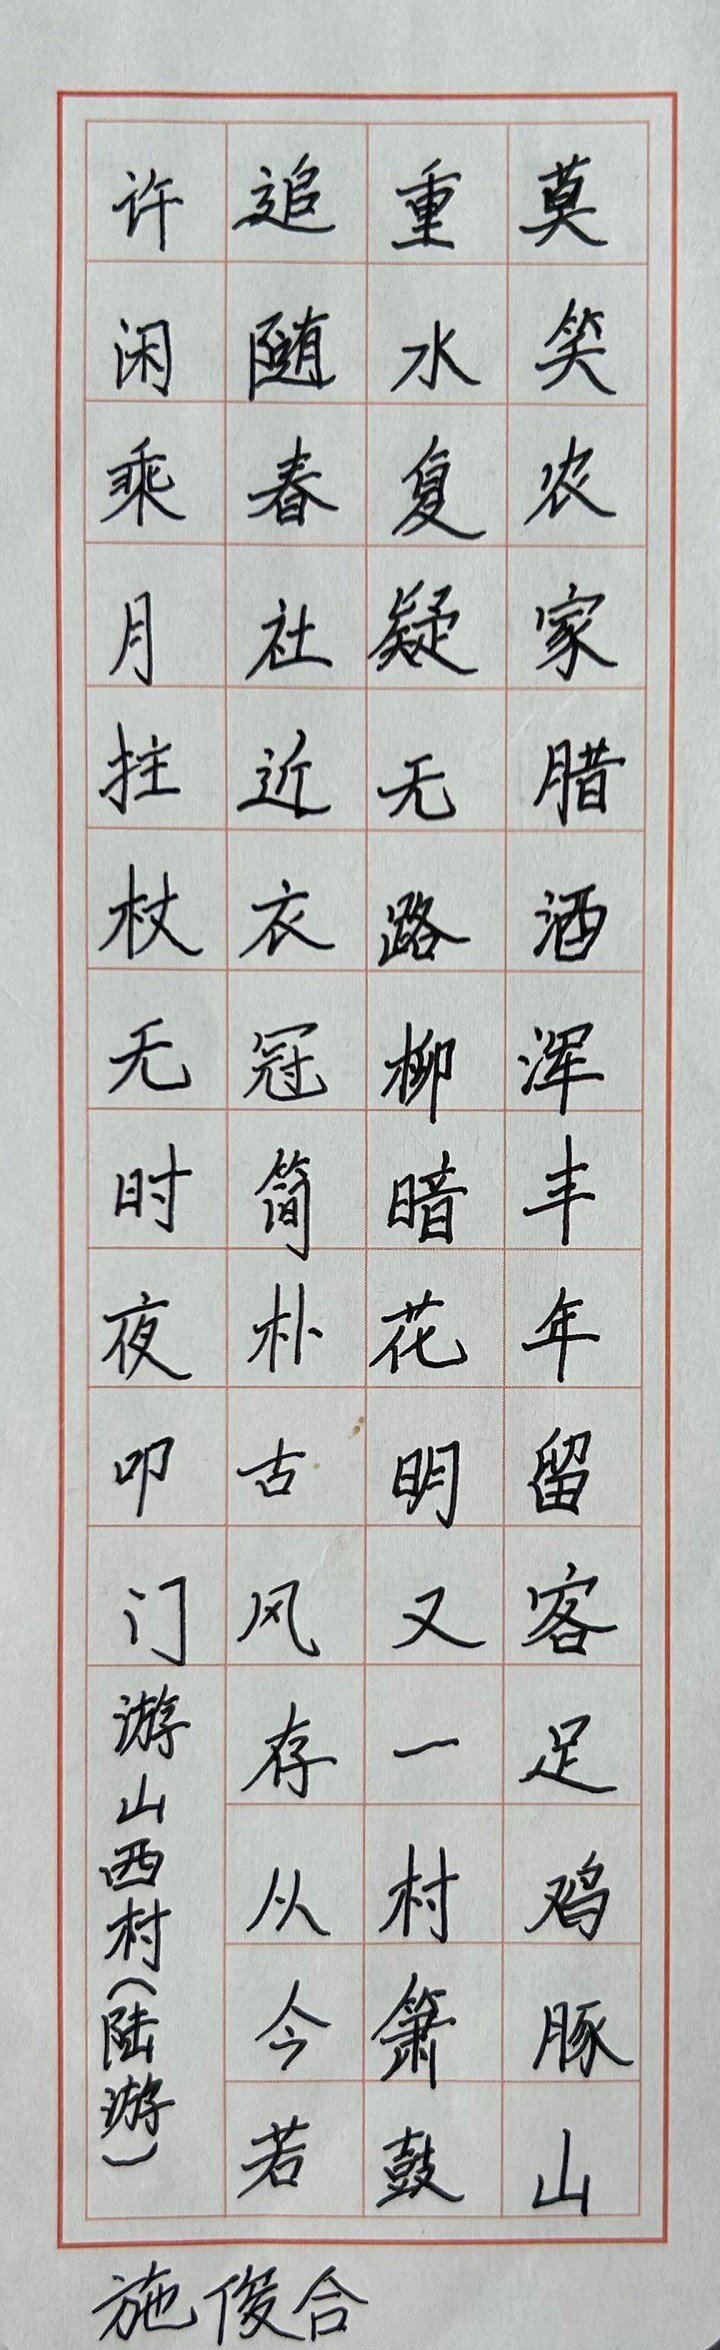 莫笑农家腊酒浑丰年留客足鸡豚山
重水复疑无路柳暗花明又一村箫鼓
追随春社近衣冠简朴古风存从今若
许闲乘月拄杖无时夜叩门
游山西村(陆游)
施俊合